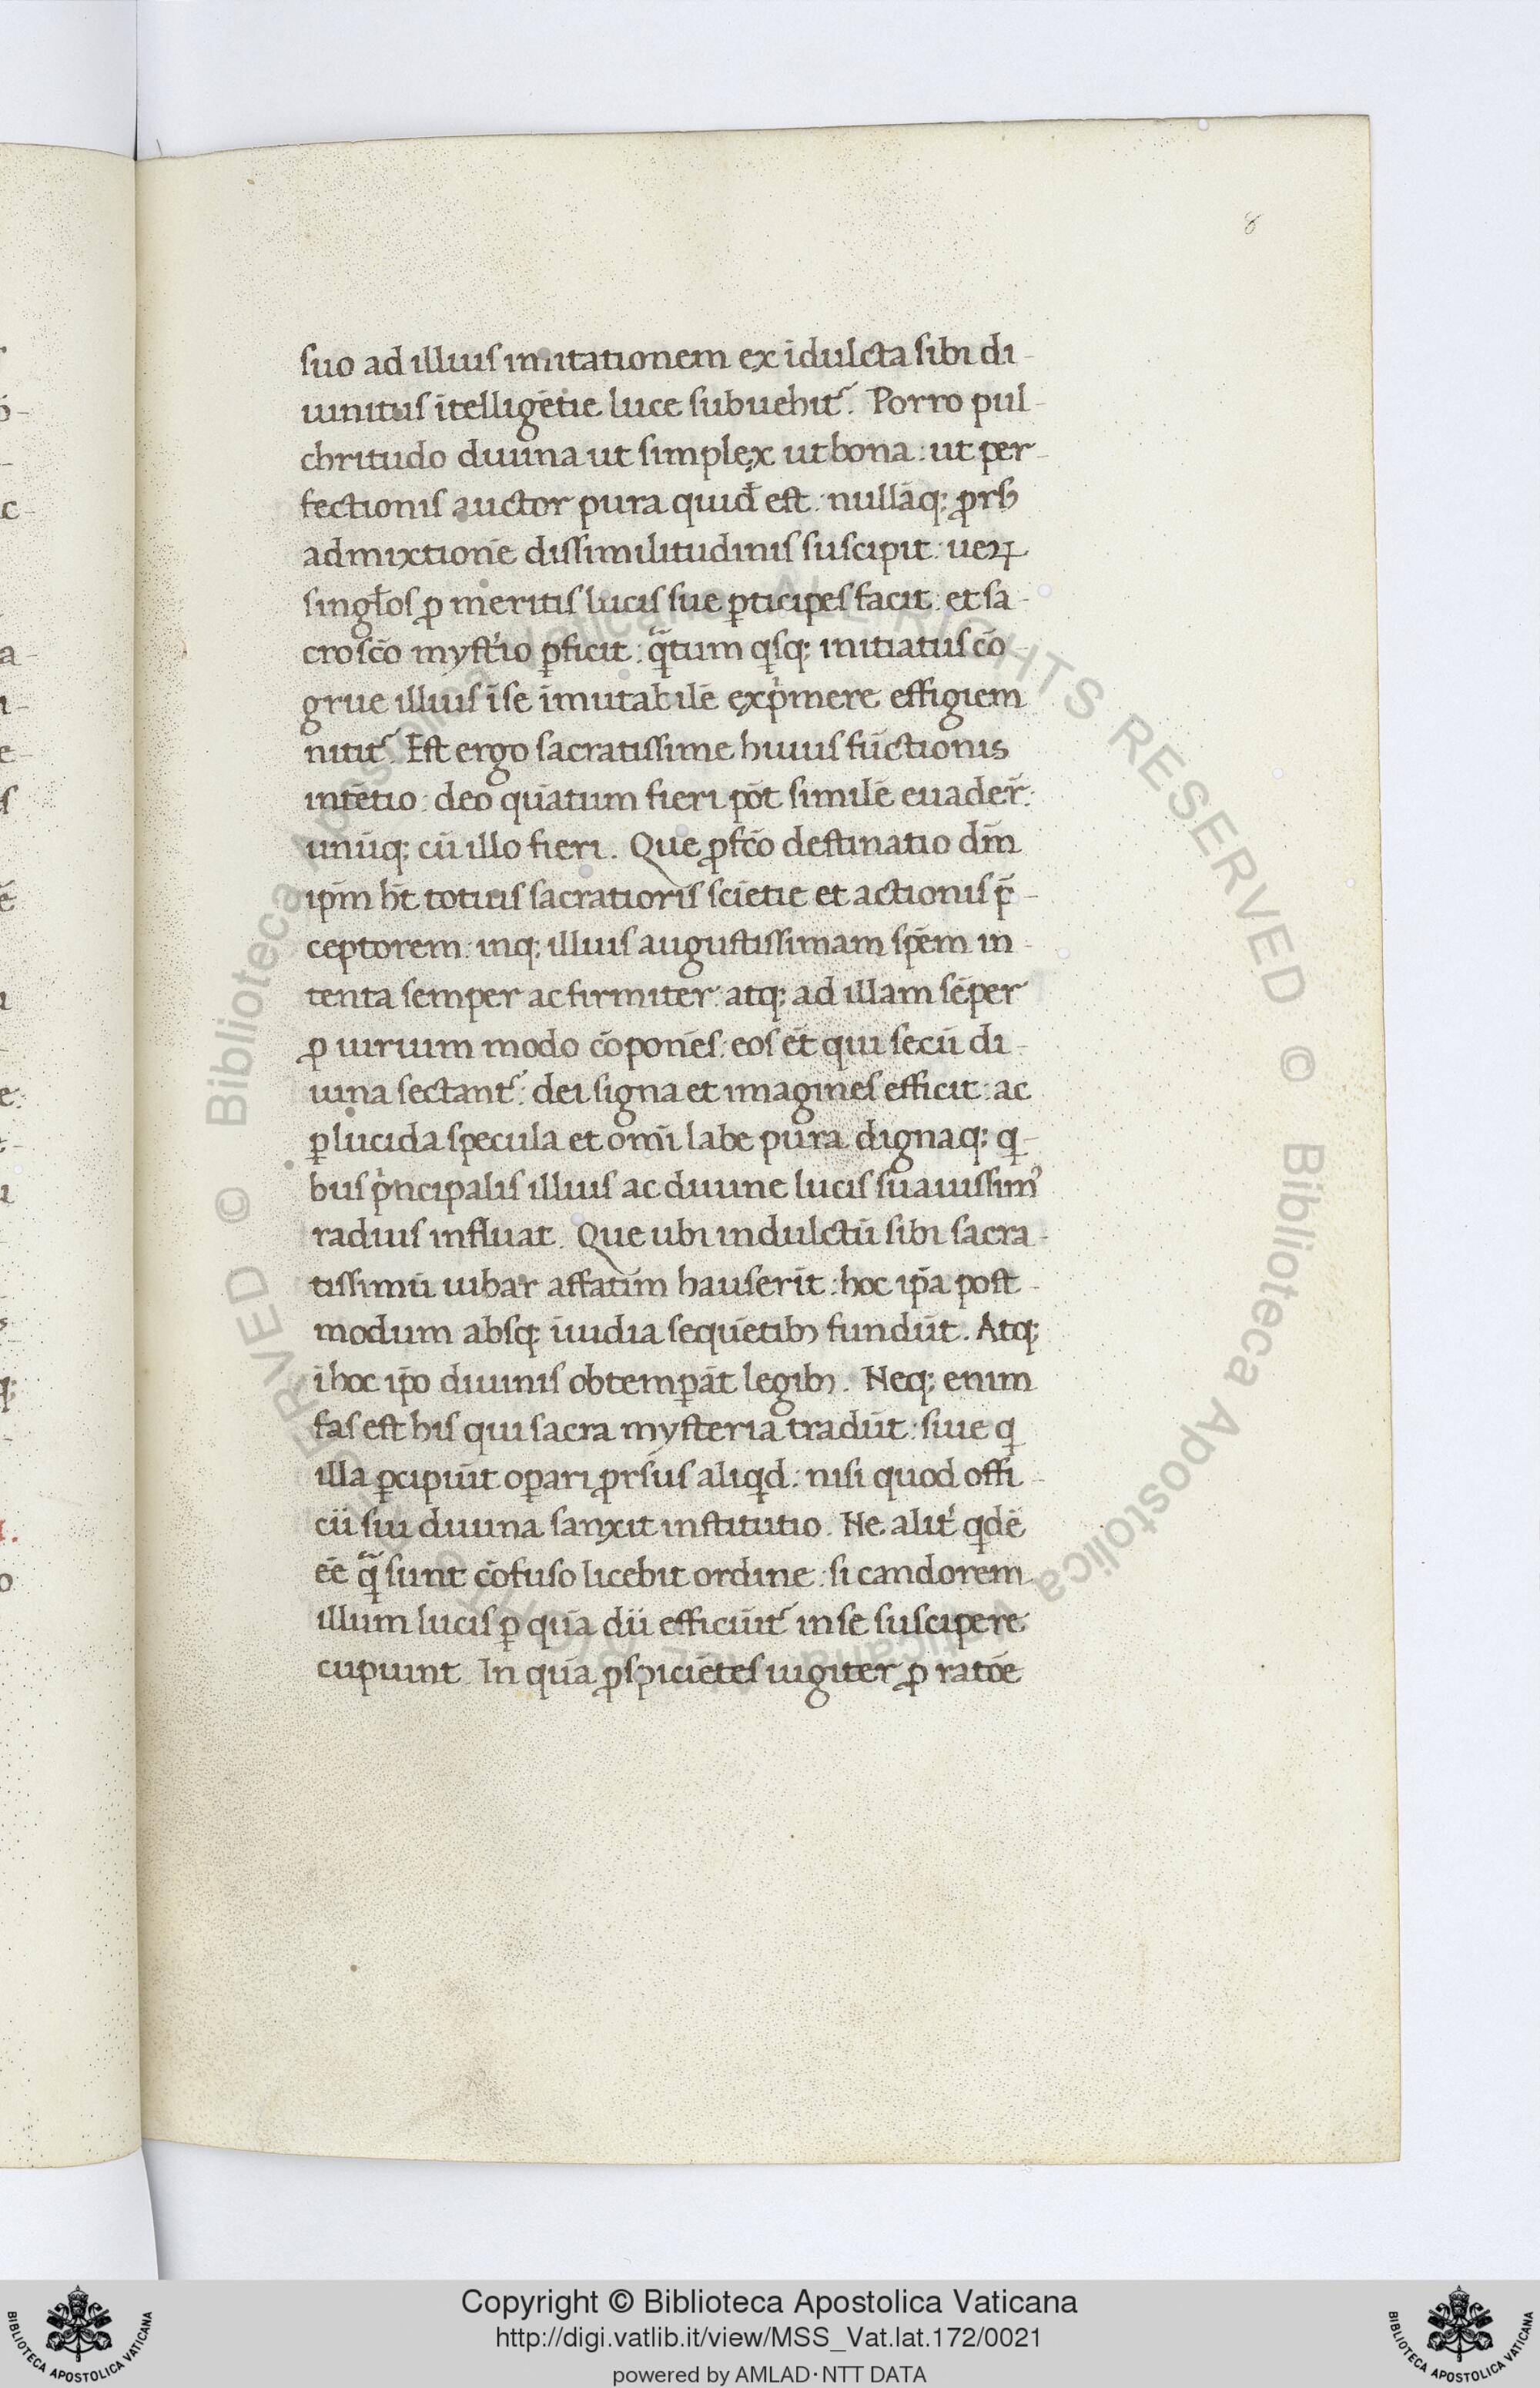 8
suo ad illius imitationem ex īdulcta sibi di-
uinitus ītelligētie luce subuehit᷑. Porro pul-
chritudo diuina ut simplex ut bona: ut per-
fectionis auctor pura quid̄ est: nullāq; ꝓrsꝰ
admixtionē dissimilitudinis suscipit: ueꝝ
singłos ꝓ meritis lucis sue ꝑticipes facit: et sa-
crosc̄o myst'io ꝑficit: qᷓtum qͥsq; initiatus cō-
grue illius īse īmutabilē exp̍mere effigiem
nitit᷑. Est ergo sacratissime huius fūctionis
intētio: deo quātum fieri pōt similē euader̄:
unūq; cū illo fieri. Que ꝓfc̄o destinatio dm̄
ipm̄ ht̄ totius sacratioris sciētie et actionis p̄-
ceptorem: inq; illius augustissimam spēm in-
tenta semper ac firmiter: atq; ad illam sēper
ꝓ uirium modo cōponēs: eos ēt qui secū di-
uina sectant᷑: dei signa et imagines efficit: ac
ꝑlucida specula et omī labe pura dignaq; qͥ-
bus p̍ncipalis illius ac diuine lucis suauissimꝰ
radius influat. Que ubi indulctū sibi sacra-
tissimū iubar affatim hauserīt: hoc ip̄a post-
modum absq; īuidia sequētibꝫ fundūt. Atq;
ī hoc ip̄o diuinis obtemꝑāt legibꝫ. Neq; enim
fas est his qui sacra mysteria tradūt: siue qͥ
illa ꝑcipiūt oꝑari ꝓrsus aliqͥd: nisi quod offi-
cii sui diuina sanxit institutio. Ne alit' qͥdē
ēe qᷓ sunt cōfuso licebit ordine: si candorem
illum lucis ꝑ quā dii efficiūt᷑ in se suscipere
cupiunt. In quā ꝓspiciētes iugiter ꝓ ratōe
Copyright © Biblioteca Apostolica Vaticana
http://digi.vatlib.it/view/MSS_Vat.lat.172/0021
powered by AMLAD·NTT DATA